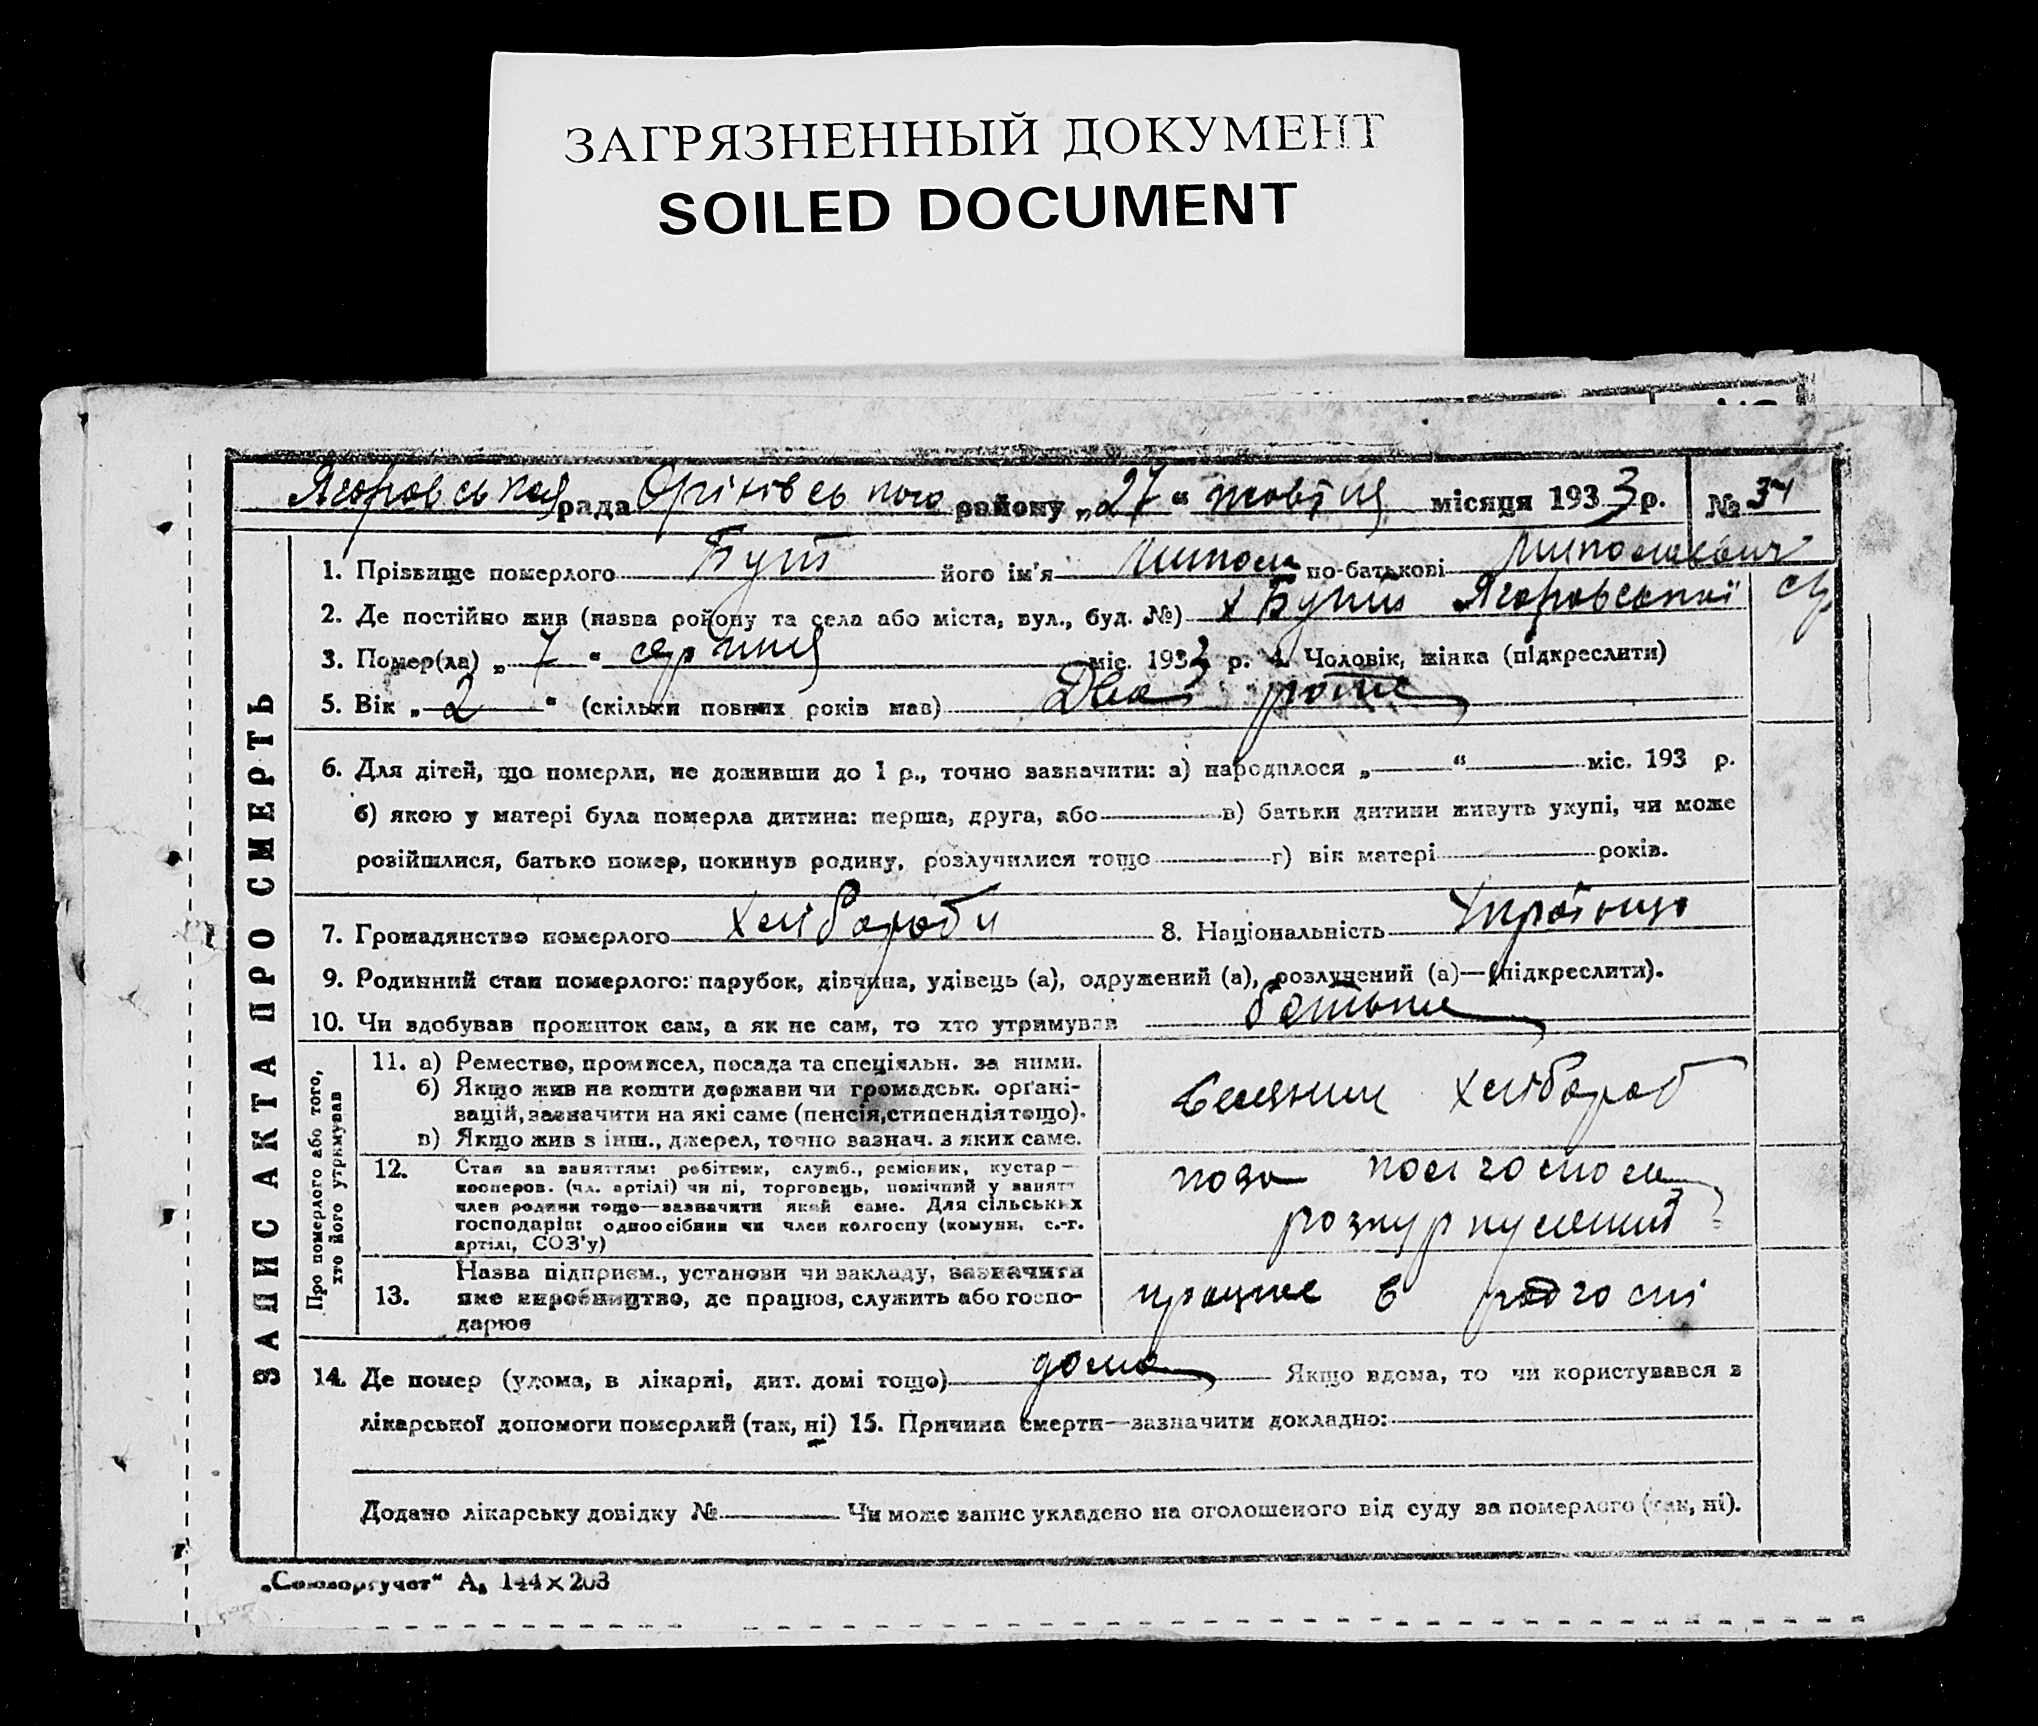 ЗАГРЯЗНЕННЫЙ ДОКУМЕНТ
SOILED DOCUMENT
рада района „27“ жовтня місяця 1933 р. № 34
1. Прізвище померлого Бут його ім'я по-батькові
2. Де постійно жив (назва району та села або міста, вул., буд. №) х Бути Ягоровської с/р
3. Помер(ла) „7“ серпня міс. 1933 р. 4. Чоловік, жінка (підкреслити)
5. Вік „2“ (скільки повних років мав) Два роки
6. Для дітей, що померли, не доживши до 1 р., точно зазначити: а) народилося „ “ міс. 193 р.
б) якою у матері була померла дитина: перша, друга, або в) батьки дитини живуть укупі, чи може
розійшлися, батько помер, покинув родину, розлучилися тощо г) вік матері років.
7. Громадянство померлого хлібороби 8. Національність
9. Родинний стан померлого: парубок, дівчина, удівець (а), одружений (а), розлучений (а)—(підкреслити).
10. Чи здобував прожиток сам, а як не сам, то хто утримував батьки
ЗАПИС АКТА ПРО СМЕРТЬ
Про померлого або того,
хто його утримував
11. а) Ремество, промисел, посада та спеціяльн. за ними.
б) Якщо жив на кошти держави чи громадськ. органі-
зацій, зазначити на які саме (пенсія, стипендія тощо).
в) Якщо жив з інш., джерел, точно зазнач. з яких саме.
Селянин хлібороб
12. Стан за заняттям: робітник, служб., ремісник, кустар—
кооперов. (чл. артілі) чи ні, торговець, помічний у занятт
член родини тощо—зазначити який саме. Для сільських
господарів: одноосібник чи член колгоспу (комуни, с.-г.
артілі, СОЗ'у)
поза колгоспом
розкуркулений
13. Назва підприєм., установи чи закладу, зазначити
яке виробництво, де працює, служить або госпо-
дарює
працює в радгоспі
14. Де помер (удома, в лікарні, дит. домі тощо) дома Якщо вдома, то чи користувався з
лікарської допомоги померлий (так, ні) 15. Причина смерти—зазначити докладно:
Додано лікарську довідку № Чи може запис укладено на оголошеного від суду за померлого (так, ні).
„Союзоргучет“ А, 144×203